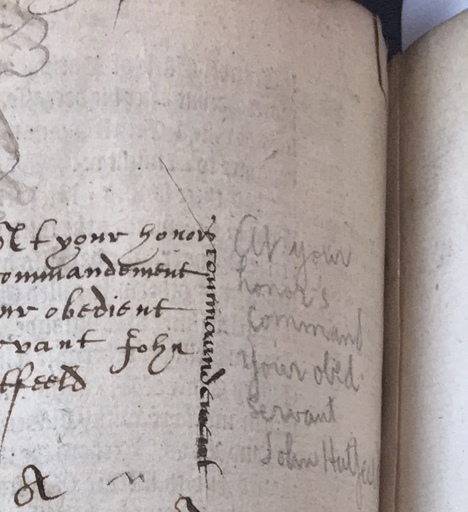 At your honors
ommandement
ur obedient
rvant John
tfeeld
At your
honor's
command
Your obed.
Servant
John Hatfee
A